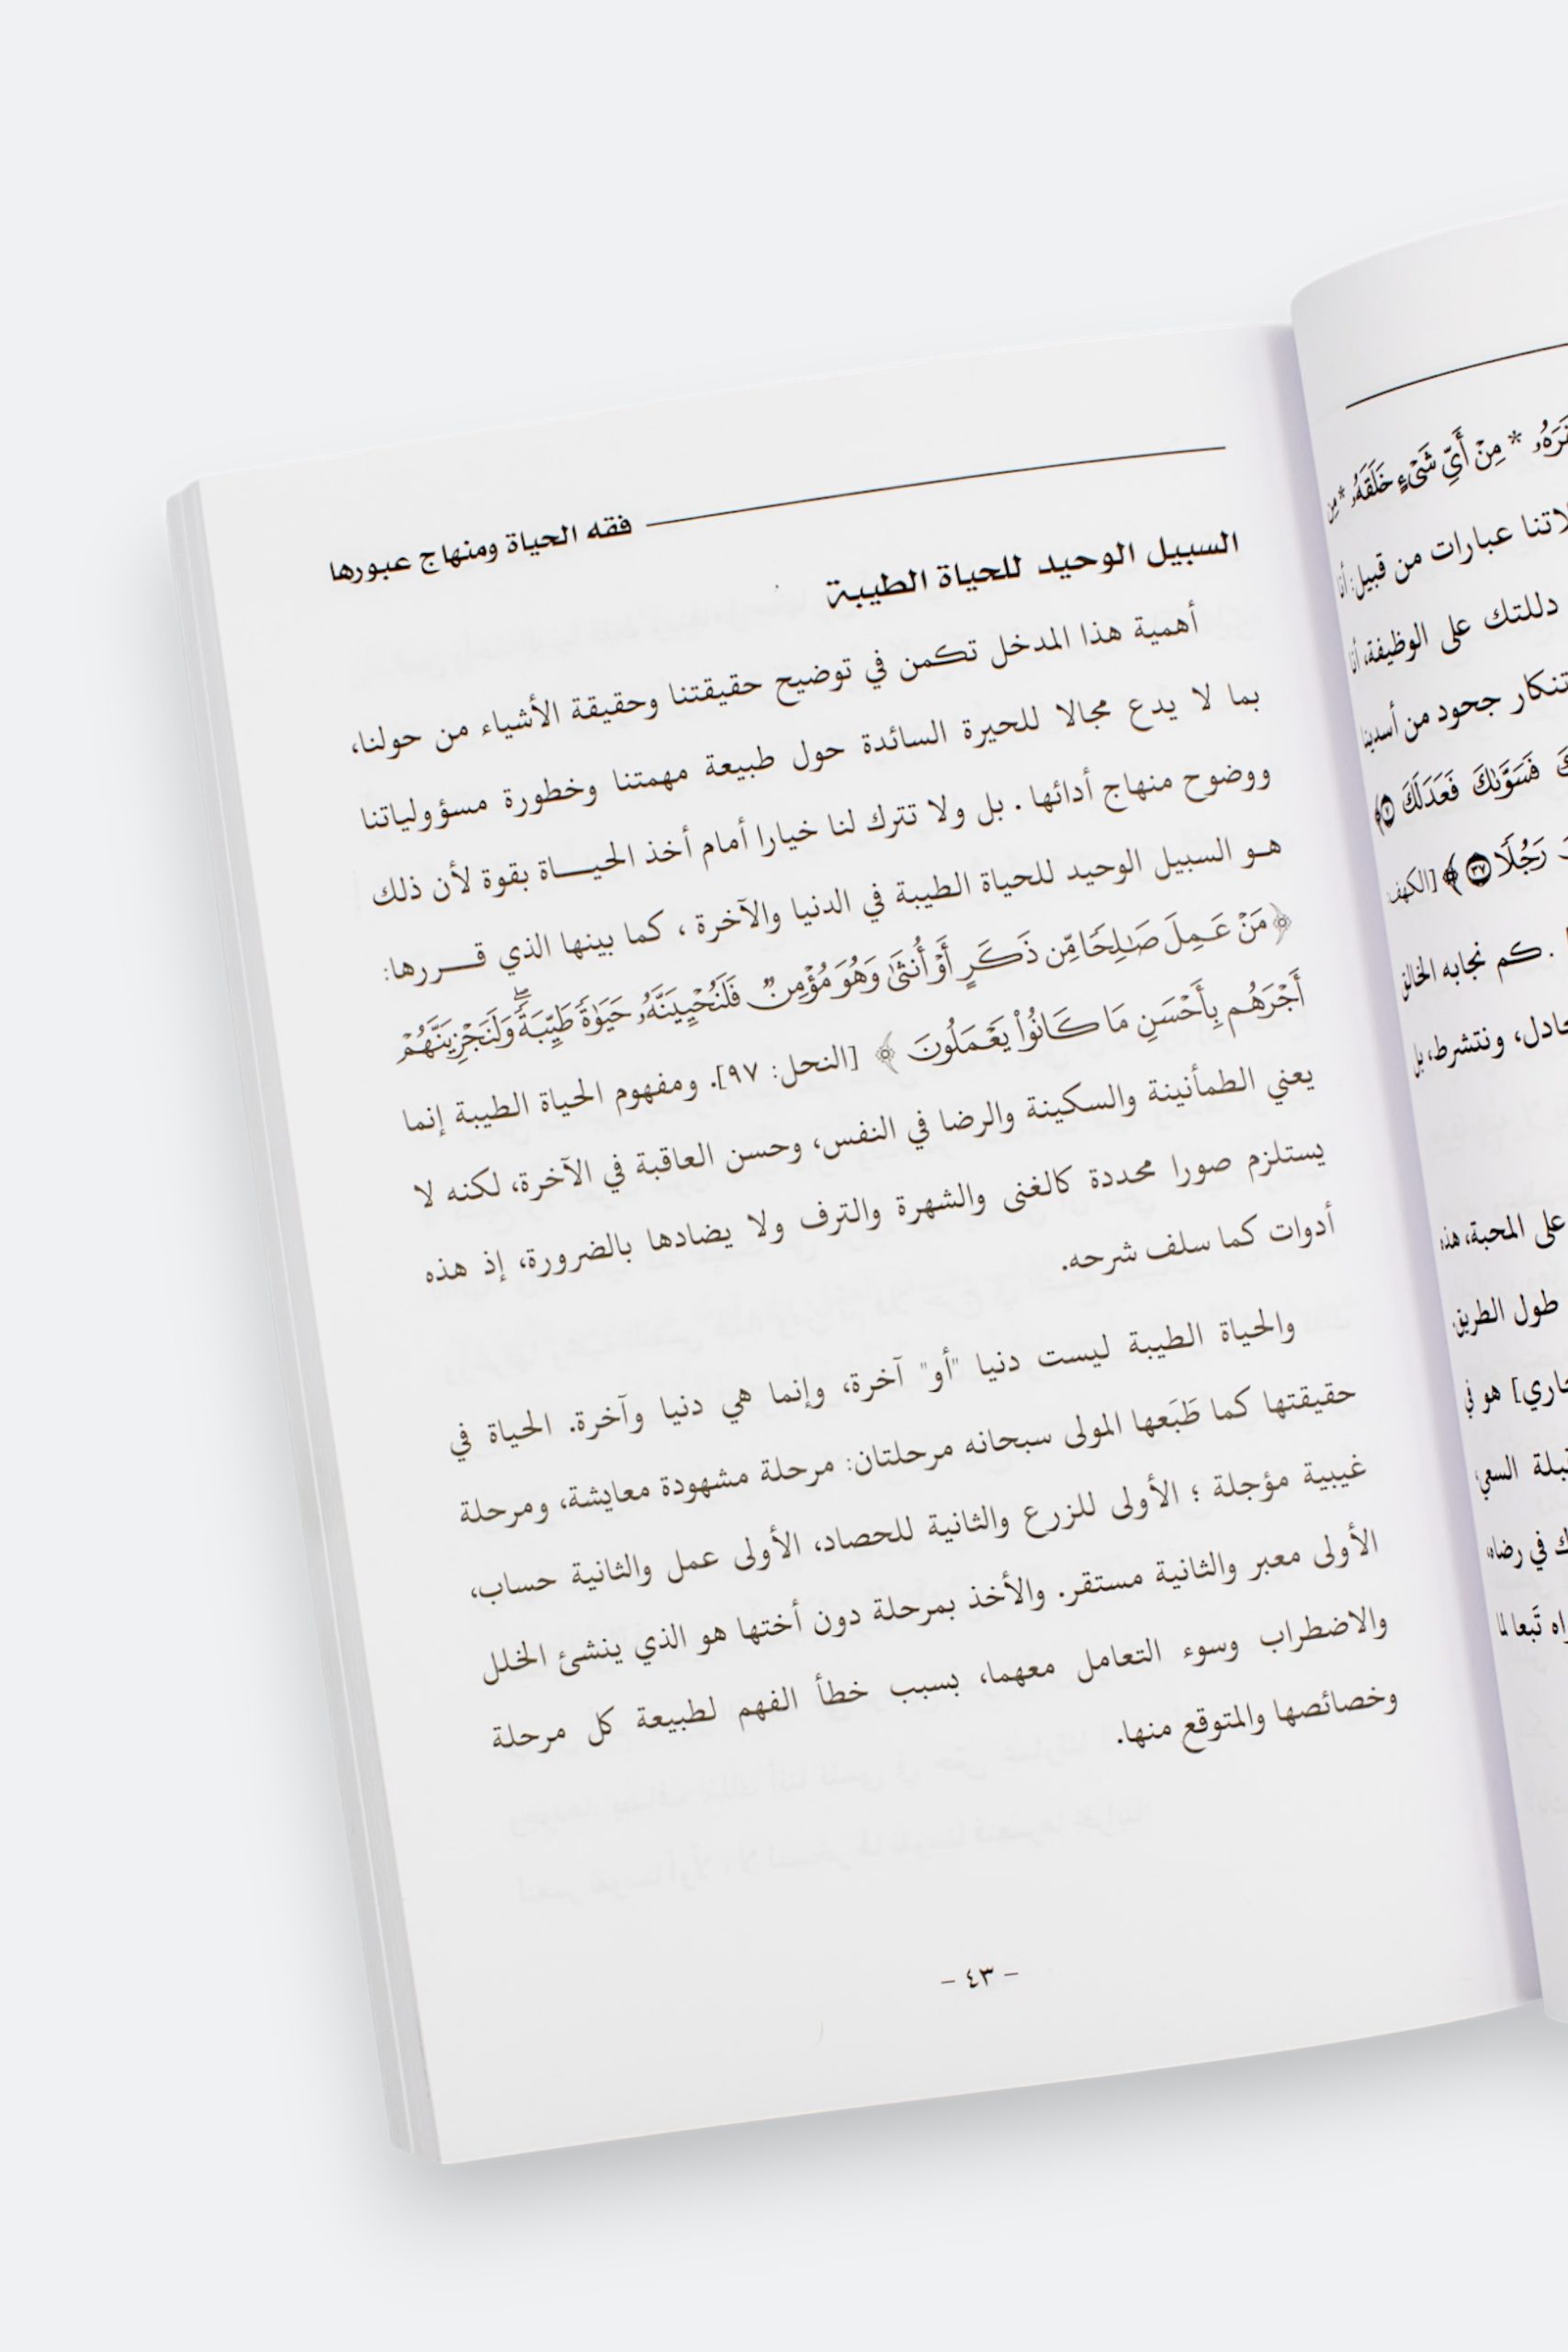 فقه الحياة ومنهاج عبورها
السبيل الوحيد للحياة الطيبة
أهمية هذا المدخل تكمن في توضيح حقيقتنا وحقيقة الأشياء من حولنا،
بما لا يدع مجالا للحيرة السائدة حول طبيعة مهمتنا وخطورة مسؤولياتنا
ووضوح منهاج أدائها . بل ولا تترك لنا خيارا أمام أخذ الحيـــاة بقوة لأن ذلك
هـو السبيل الوحيد للحياة الطيبة في الدنيا والآخرة ، كما بينها الذي قــــررها:
﴿مَنْ عَمِلَ صَٰلِحًا مِّن ذَكَرٍ أَوْ أُنثَىٰ وَهُوَ مُؤْمِنٌ فَلَنُحْيِيَنَّهُۥ حَيَوٰةً طَيِّبَةً ۖ وَلَنَجْزِيَنَّهُمْ
أَجْرَهُم بِأَحْسَنِ مَا كَانُوا۟ يَعْمَلُونَ ﴾ [النحل: ٩٧]. ومفهوم الحياة الطيبة إنما
يعني الطمأنينة والسكينة والرضا في النفس، وحسن العاقبة في الآخرة، لكنه لا
يستلزم صورا محددة كالغنى والشهرة والترف ولا يضادها بالضرورة، إذ هذه
أدوات كما سلف شرحه.
والحياة الطيبة ليست دنيا "أو" آخرة، وإنما هي دنيا وآخرة. الحياة في
حقيقتها كما طَبَعها المولى سبحانه مرحلتان: مرحلة مشهودة معايشة، ومرحلة
غيبية مؤجلة ؛ الأولى للزرع والثانية للحصاد، الأولى عمل والثانية حساب،
الأولى معبر والثانية مستقر. والأخذ بمرحلة دون أختها هو الذي ينشئ الخلل
والاضطراب وسوء التعامل معهما، بسبب خطأ الفهم لطبيعة كل مرحلة
وخصائصها والمتوقع منها.
- ٤٣ -
* مِنْ أَيِّ شَىْءٍ خَلَقَهُۥ * مِن
عبارات من قبيل: أنا
دللتك على الوظيفة، أنا
جحود من أسدينا
فَسَوَّىٰكَ فَعَدَلَكَ ۝٧﴾
رَجُلًا ۝٣٧﴾ [الكهف:
. كم نجابه الخالق
ونتشرط، بل
على المحبة، هذه
طول الطريق.
هو في
السعي
في رضاه،
تَبعا لما